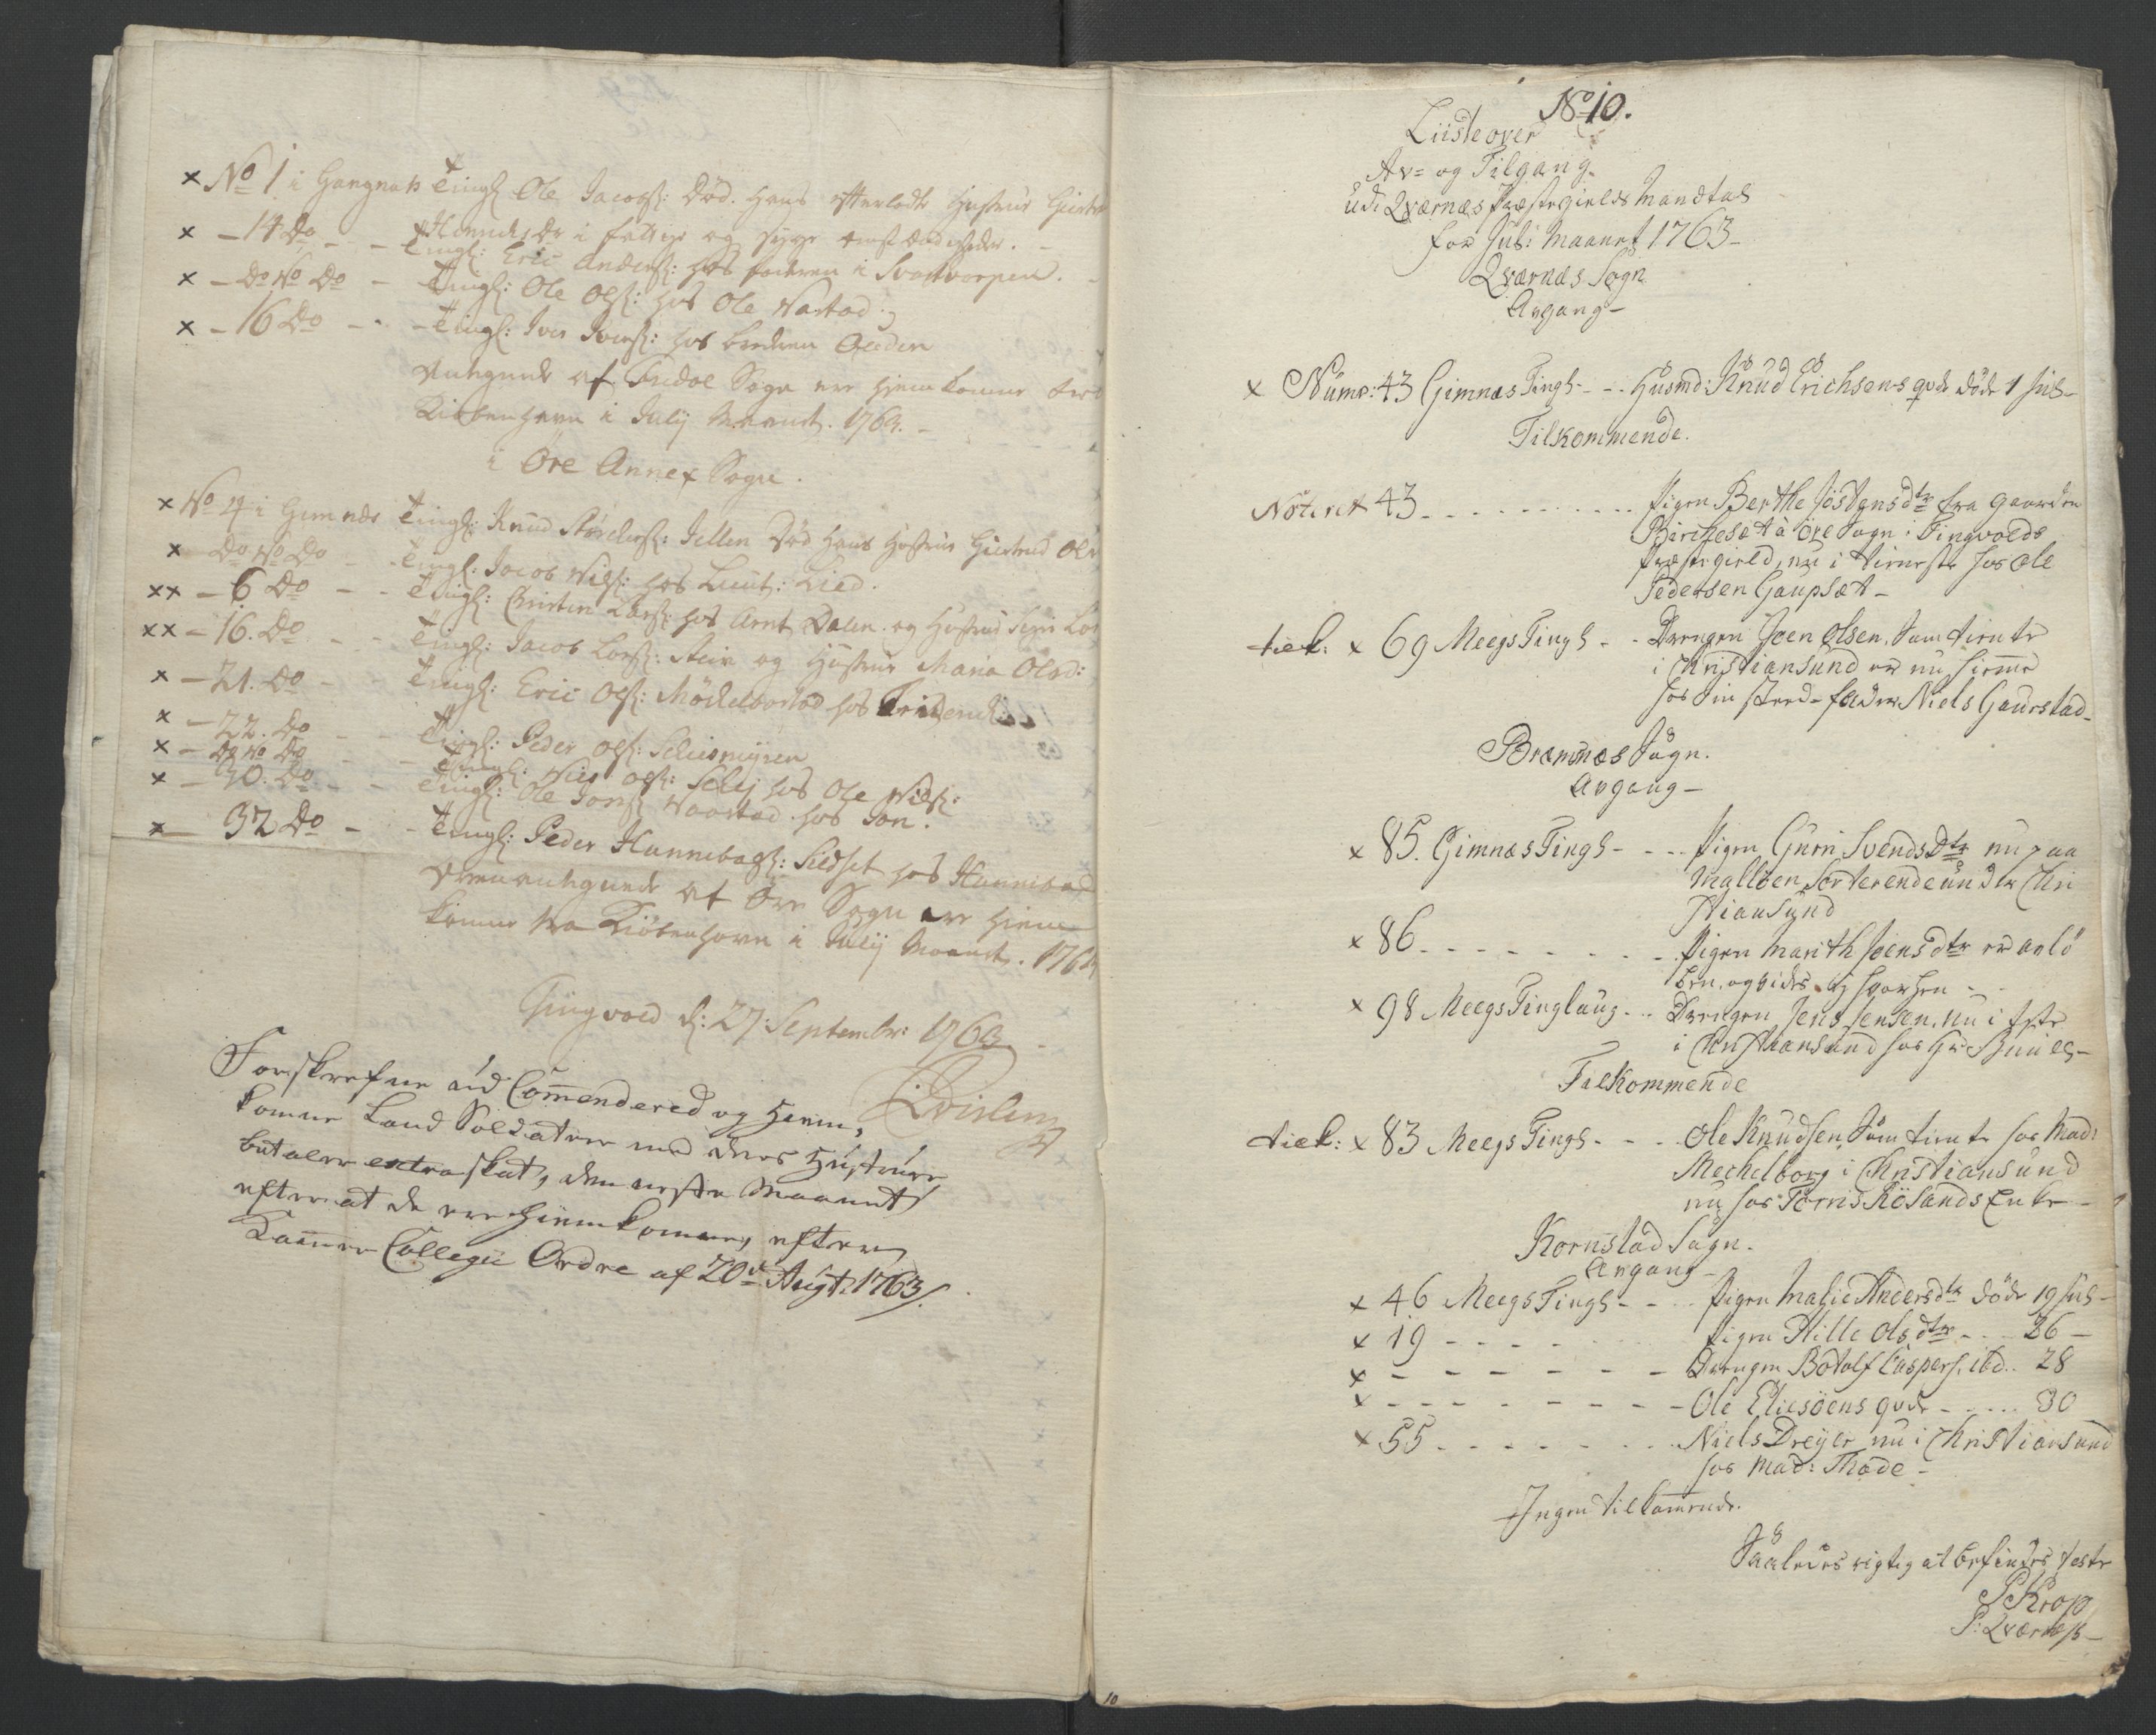 × No 1 i Gangnæs Tingl: Ole Jacobs: Död. hans efterladte Hustrue
Henrichs Dr i fattige og syge omstændigheder.
× - 14 Do - - Tingl: Eric Anders: hos faderen i
× - Do No Do - Tingl: Ole Ols: hos Ole Nastad.
× - 16 Do - - Tingl: Iver Ivers: hos broderen
af Tredöe Sogn ere hiemkomne fra
Kiöbenhavn i Julij Maanet. 1763.
i Öre Annex Sogn.
× No 4 i Gimnæs Tingl: Knud Död hans Hustrue
× Do No Do - Tingl: Jacob Niels: hos Lieut: Lied.
×× - 6 Do - - Tingl: Christen Lars: hos Arnt Dalen. og Hustrue
×× - 16. Do - - Tingl: Jacob Lars: og Hustrue Maria Olsd:
× - 21. Do - - Tingl: Eric Ols: hos
× - 22. Do - - Tingl: Peder Ols:
× - Do No Do - - Tingl: Niels Ols: hos Ole Niels:
× - 30. Do - - Tingl: Ole Jons: Naastad. hos Jon.
× - 32 Do - - Tingl: Peder Hannibals: Sildset hos Hannibal
af Öre Sogn ere hiem
komne fra Kiöbenhavn i Julij Maanet. 1763
Tingvold d: 27: Septembr: 1763.
Forskrefne ud Com̄endered og hiem,
komne Land Soldatere med deres Hustruer
betaler extra skat, den neste Maanet
efter at de ere hiemkomne, efter
Cammer Collegii Ordre af 20de Augt: 1763/.
No 10.
Liiste over
Av= og Tilgang
udi Qværnæs Præstegields Mandtal
for Juli Maanet 1763
Qværnæs Sogn
Avgang-
× Num̄: 43 Gimnæs Tingl- - - Husmd: Knud Erichsens qvde döde 1 Jul-
Tilkommende.
Noteret 43 - - - - - - - Pigen Berthe Jöstensdtr fra Gaarden
Bærchesæt à Öre Sogn i Tingvolds
Præstegield, nu i tieneste hos Ole
Pedersen Gaupsæt -
× 69 Meegs Tingl - - Drengen Joen Olsen, som tiente
i Christiansund er nu hiem̄e
hos sin stend-fader Niels Gaustad-
Bræmnæs Sogn.
Avgang -
× 85. Gimnæs Tingl- - - Pigen Guri Svends Dtr nu paa
Malöen sorterende under Chri
stiansund
× 86 - - - - - - - Pigen Marith Joensdtr er avlö
ben, og vides ej hvorhen -
× 98 Meegs Tinglaug - - Drengen Jens Jensen, nu i tste
i Christiansund hos Hr
Tilkommende
× 83 Meegs Tingl- - - Ole Knudsen, som tiente hos Mad:
Mechelborg i Christiansund
nu hos Törris Rösands Enke -
Kornstad Sogn.
Avgang -
× 46 Meegs Tingl- - - Pigen Malie Andersdtr döde 19 Jul-
× 19 - - - - Pigen Olsdtr - - 26 -
× - - - - - - - Drengen Botolf Caspers. ibd. 28
× - - - - - - - Ole Eliesöens qvde - - - 30
× 55 - - - - - - Niels Dreyer nu i Christiansund
hos Mad: Thode -
Ingen tilkom̄ende.
Saaledes rigtig at befindes, teste
S Krop
P: Qværnæs-
10